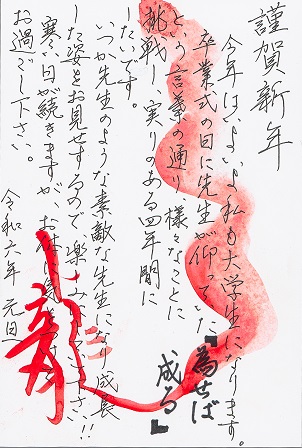 謹賀新年
今年はいよいよ私も大学生になります。
卒業式の日に先生が仰っていた『為せば成る』
という言葉の通り、様々なことに
挑戦し実りのある四年間に
したいです。
いつか先生のような素敵な先生になり成長
した姿をお見せするので楽しみにしてて下さい!!
寒い日が続きますが、お体に気をつけて
お過ごし下さい。
令和六年 元旦
龍